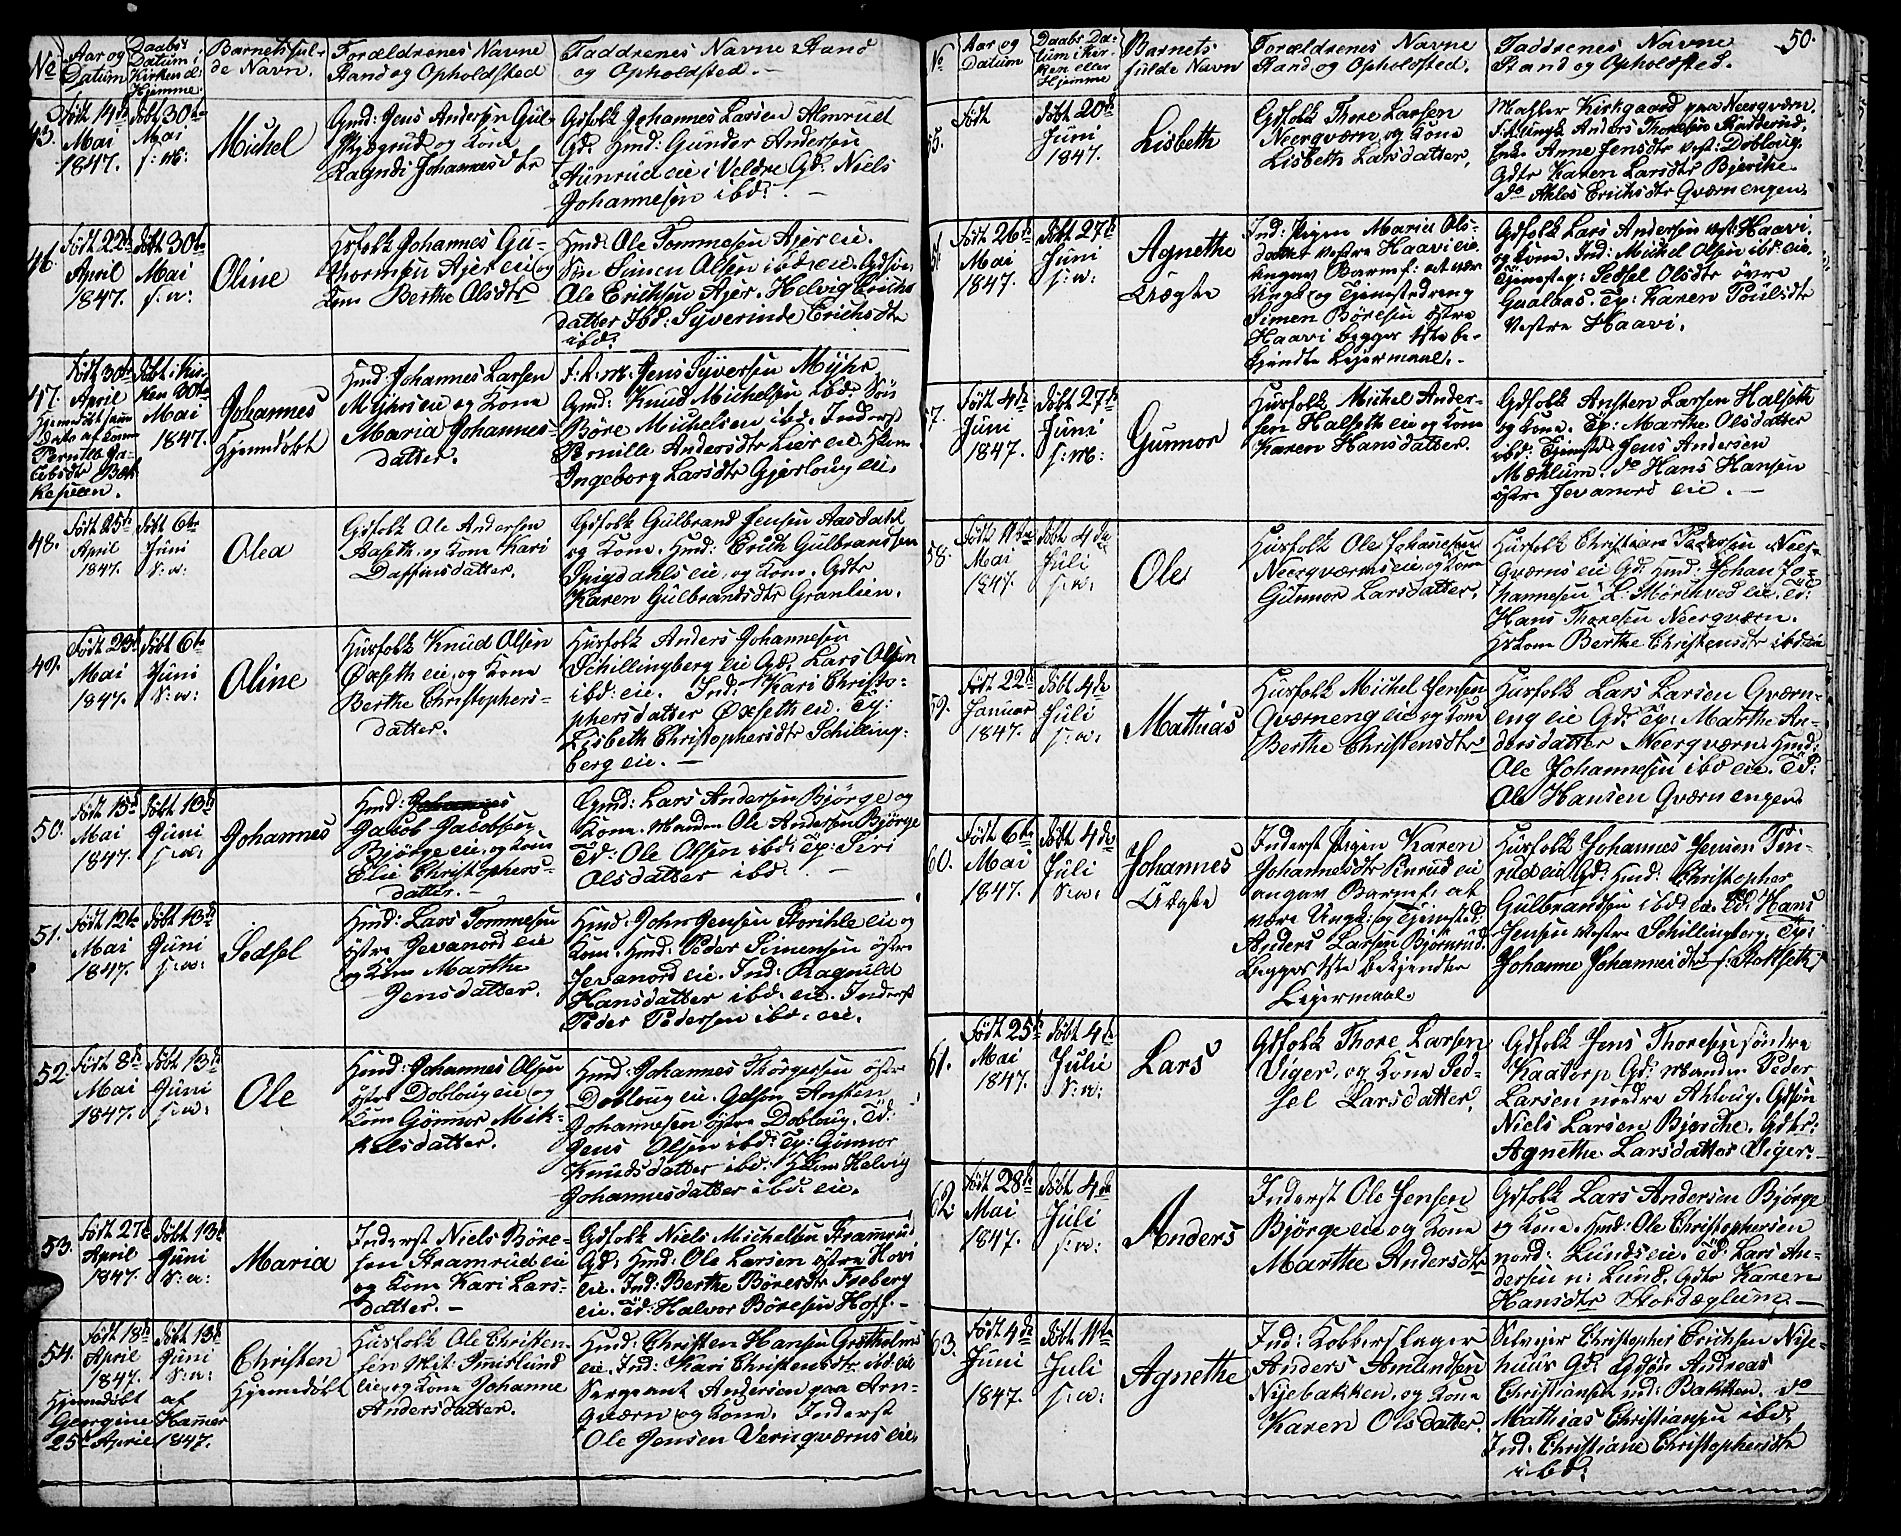 No
Aar og
Datum
Daabs
Datum i
Kirken el:
Hjemme.
Barnets ful-
de Navn.
Forældrenes Navne
Stand og Opholdsted
Faddrenes Navne Stand
og Opholdsted.
45.
Født 14de
Mai
1847.
døbt 30te
Mai
Michel
Gmd: Jens Andersen
og Kone
Johannesdtr
Gdfolk Johannes Larsen Almrud
Gd. Hmd: Gunder Andersen
eie i Veldre Gd. Niels
Johannesen ibd:
46.
Født 22de
April
1847.
døbt 30te
Mai
s: w:
Oline
Hsfolk Johannes Gu-
thormsen Ajer eie og
Kone Berthe Olsdtr
Hmd: Ole Tommesen Ajer eie.
Søn Simen Olsen ibd: eie. Gdsøn
Ole Erichsen Ajer. Helvig Erichs
datter Ibd: Syverinde Erichsdtr
ibd:
47.
Født 30te
April
Hjemmedøbt samme
Dato af Konen
Pernille Ja-
cobsdtr
døbt i Kir-
ken 30te
Mai
1847.
Johannes
Hjemmedøbt
Hmd: Johannes Larsen
Myhrs eie og Kone
Maria Johannes-
datter.
F: K: M: Jens Syversen Myhr
Gmd: Knud Michelsen ibd: Søn
Børe Michelsen ibd: Inderst
Pernille Andersdtr Lier eie. Hkone
Ingeborg Larsdtr Gjerloug eie.
48.
Født 25de
April
1847.
døbt 6te
Juni
s: w:
Olea
Gdfolk Ole Andersen
Baseth og Kone Kari
Daffinsdatter.
Gdfolk Gulbrand Jensen Aasdahl
og Kone. Hmd: Erich Gulbrandsen
Spigdahls eie, og Kone. Gdtr
Karen Gulbrandsdtr Granlien.
49.
Født 23de
Mai
1847.
døbt 6te
Juni
s: w:
Oline
Husfolk Knud Olsen
Øxseth eie, og Kone
Berthe Christophers-
datter.
Husfolk Anders Johannesen
Schillingberg eie Gd: Lars Olsen
ibd: eie. Ind: Kari Christo-
phersdatter Øxseth eie. Tp:
Lisbeth Christophersdtr Schilling-
berg eie.
50.
Født 15de
Mai
1847.
døbt 13de
Juni
s: w:
Johannes
Hmd:
Jacob Jacobsen
Bjørge eie, og Kone
Elie Christophers-
datter.
Gmd: Lars Andersen Bjørge og
Kone. Manden Ole Andersen Bjørge
Td: Ole Olsen ibd: Tp: Siri
Olsdatter ibd:
51.
Født 12te
Mai
1847.
døbt 13de
Juni
s: w:
Sedsel
Hmd: Lars Tommesen
østre Jevanord eie
og Kone Marthe
Jensdatter.
Hmd: John Jensen eie og
Kone. Hmd: Peder Simensen østre
Jevanord eie. Ind: Ragnild
Hansdatter ibd. eie. Inderst
Peder Pedersen ibd. eie.
52.
Født 8de
Mai
1847.
døbt 13de
Juni
s: w:
Ole
Hmd: Johannes Olsen
østre Doblougeie og
Kone Gunnor Mik-
kelsdatter.
Hmd: Johannes Thorgersen østre
Dobloug eie. Gdsøn Ansten
Johannesen østre Dobloug. Td:
Jens Olsen ibd: Tp: Gunnor
Knudsdatter ibd: Hkone Helvig
Johannesdatter ibd: eie.
53.
Født 27de
April
1847.
døbt 13de
Juni
s: w:
Maria
Inderst Niels Børe-
sen Stramrud eie
og Kone Kari Lars-
datter.
Gdfolk Niels Michelsen Stramrud
Gd: Hmd: Ole Larsen østre Hovi
eie. Ind: Berthe Børesdtr Freberg
eie. Td: Halvor Børesen Hoff.
54.
Født 18de
April
1847.
Hjemmedøbt af
Georgine Hamer
25de April 1847.
døbt 13de
Juni
s: w:
Christen
Hjemmedøbt
Husfolk Ole Christen-
sen Smislund
eie, og Kone Johanne
Andersdatter.
Hmd: Christen Hansen Grøtholms
eie. Ind: Kari Christensdtr ibd: eie
Sergeant Andersen paa Arn-
qværn og Kone. Inderst
Ole Jensen Veriqværns eie.
No
Aar og
Datum
Daabs Da-
tum i Kir-
ken eller
Hjemme
Barnets
fulde Navn
Forældrenes Navne
Stand og Opholdsted.
Faddrenes Navne
Stand og Opholdsted.
50.
55.
Født
døbt 20de
Juni
1847.
Lisbeth
Gdfolk Thore Larsen
Neerqværn, og Kone
Lisbeth Larsdatter.
Kirkgaard paa Neerqværn.
Anders Thoresen
Enke Anne Jensdtr vest: Dobloug.
Gdtr Karen Larsdtr Bjerche
do Ahles Erichsdtr Qværnengen.
Født 26de
Mai
1847.
døbt 27de
Juni
s: w:
Agnethe
Uægte
Ind: Pigen Maria Ols-
datter vestre Haavi eie
angav Barnef: at vær
Ungk: og Tjenestedreng
Simen Børesen østre
Haavi begges 1ste be-
kjendte Lejermaal.
Gdfolk Lars Andersen vest: Haavi.
og Kone. Ind: Michel Olsen ibd: eie.
Tjenestep: Sedsel Olsdtr øvre
Gaalaas. Tp: Karen Poulsdtr
vestre Haavi.
57.
Født 4de
Juni
1847.
døbt 27de
Juni
Gunnor
Husfolk Michel Ander-
sen Halseth eie og Kone
Karen Hansdatter.
Gdfolk Ansten Larsen Halseth
og Kone. Tp: Marthe Olsdatter
ibd: Tjenested: Jens Andersen
Mæhlum. do Hans Hansen
østre Jevanord eie.
58.
Født 11te
Mai
1847.
døbt 4de
Juli
s: w:
Ole
Husfolk Ole Johannesen
Neerqværns eie, og Kone
Gunnor Larsdatter.
Husfolk Christian Pedersen Neer-
qværns eie Gd: Hmd: Johan Jo-
hannesen L: Mørchved eie. Td:
Hans Thoresen Neerqværn.
Hkone Berthe Christensdtr ibd: eie
59.
Født 22de
Januar
1847.
døbt 4de
Juli
s: w:
Mathias
Husfolk Michel Jensen
Qværneng eie og Kone
Berthe Christensdtr
Husfolk Lars Larsen Qværn-
eng eie Gd: Tp: Marthe An-
dersdatter Neerqværn. Hmd:
Ole Johannesen ibd eie. Td:
Ole Hansen Qværnengen
60.
Født 6te
Mai
1847.
døbt 4de
Juli
s: w:
Johannes
Uægte
Inderst Pigen Karen
Johannesdtr Pinrud eie
angav Barnef: at
være Ungk: og Tjenested:
Anders Larsen Bjørnrud.
Begges 1ste bekjendte
Lejermaal.
Husfolk Johannes Jensen Pin-
rud eie Gd: Hmd: Christopher
Gulbrandsen ibd eie. Td: Hans
Jensen vestre Schillingberg. Tp:
Johanne Johannesdtr Stokseth
61.
Født 25de
Mai
1847.
døbt 4de
Julie
s: w:
Lars
Gdfolk Thore Larsen
Viger, og Kone Sed-
sel Larsdatter.
Gdfolk Jens Thoresen søndre
Kaatorp Gd: Manden Peder
Larsen nedre Ahloug. Gdsøn
Niels Larsen Bjerche. Gdtr:
Agnethe Larsdatter Viger.
62.
Født 28de
Mai
1847.
døbt 4de
Juli
s: w:
Anders
Inderst Ole Jensen
Bjørge eie og Kone
Marthe Andersdtr
Gdfolk Lars Andersen Bjørge
og Kone. Hmd: Ole Christophersen
nord: Lunds eie. Td: Lars An-
dersen n: Lund. Gdtr Karen
Hansdtr
63.
Født 4de
Juni
1847.
døbt 11te
Juli
s: w:
Agnethe
Ind: Kobberslager
Anders Amundsen
Nyebakken, og Kone
Karen Olsdatter.
Selvejer Christopher Erichsen Nye-
huus Gd: Gdsøn Andreas
Christiansen nd: Bakken. do
Mathias Christiansen ibd:
Ind: Christiane Christophersdtr
ibd: